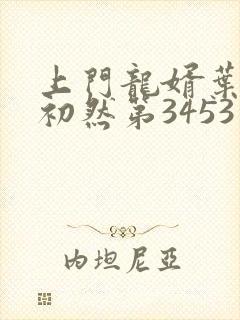 上門龍婿葉
初然第3453
內坦尼亞